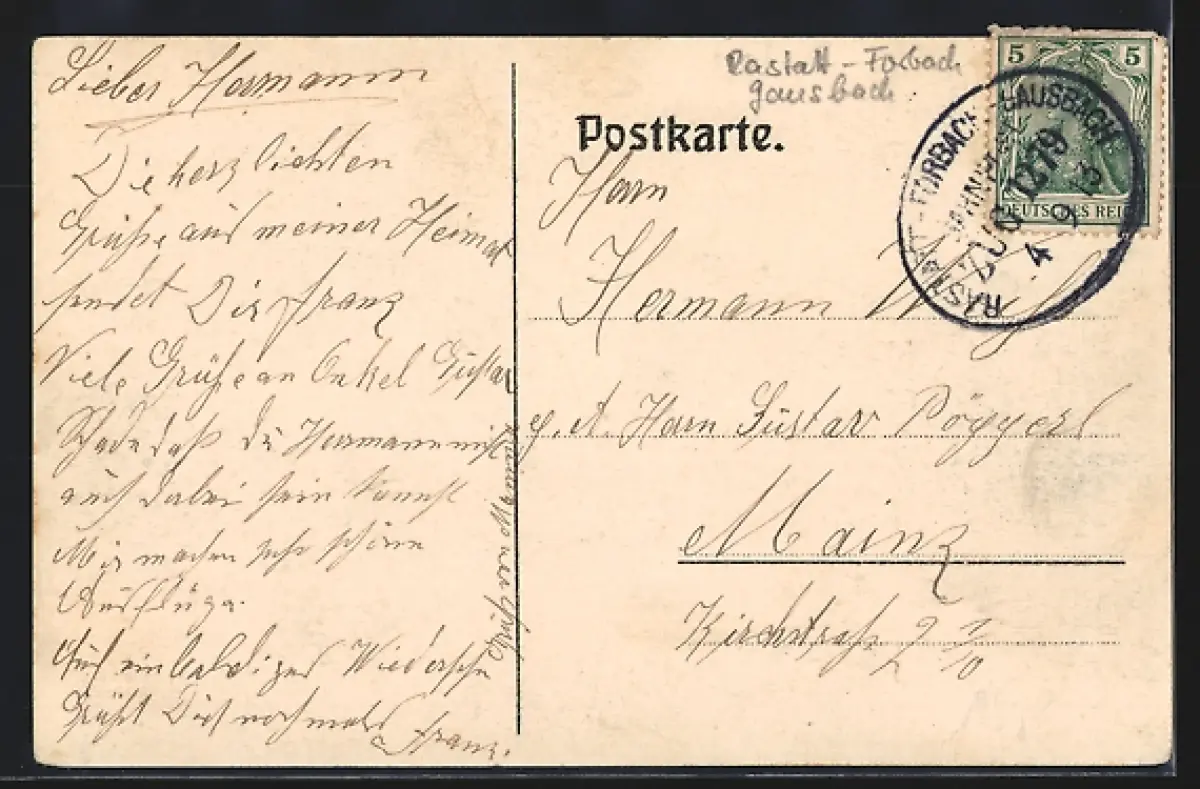 Lieber Hermann
Die herzlichsten
Grüße aus meiner Heimat
sendet Dir Franz
Viele Grüße an Onkel Gustav
Schade daß Du Hermann nicht
auch dabei sein kannst
Wir machen sehr schöne
Ausflüge.
Auf ein baldiges Wiedersehn
Grüßt Dich nochmals Franz.
Rastatt - Forbach
Gausbach
Postkarte.
5 5
DEUTSCHES REICH
RASTATT - FORBACH-GAUSBACH
BAHNPOST
ZUG 1279
4 9 13
Herrn
Hermann
Herrn Gustav
Mainz
Kirchstraße 2 1/10